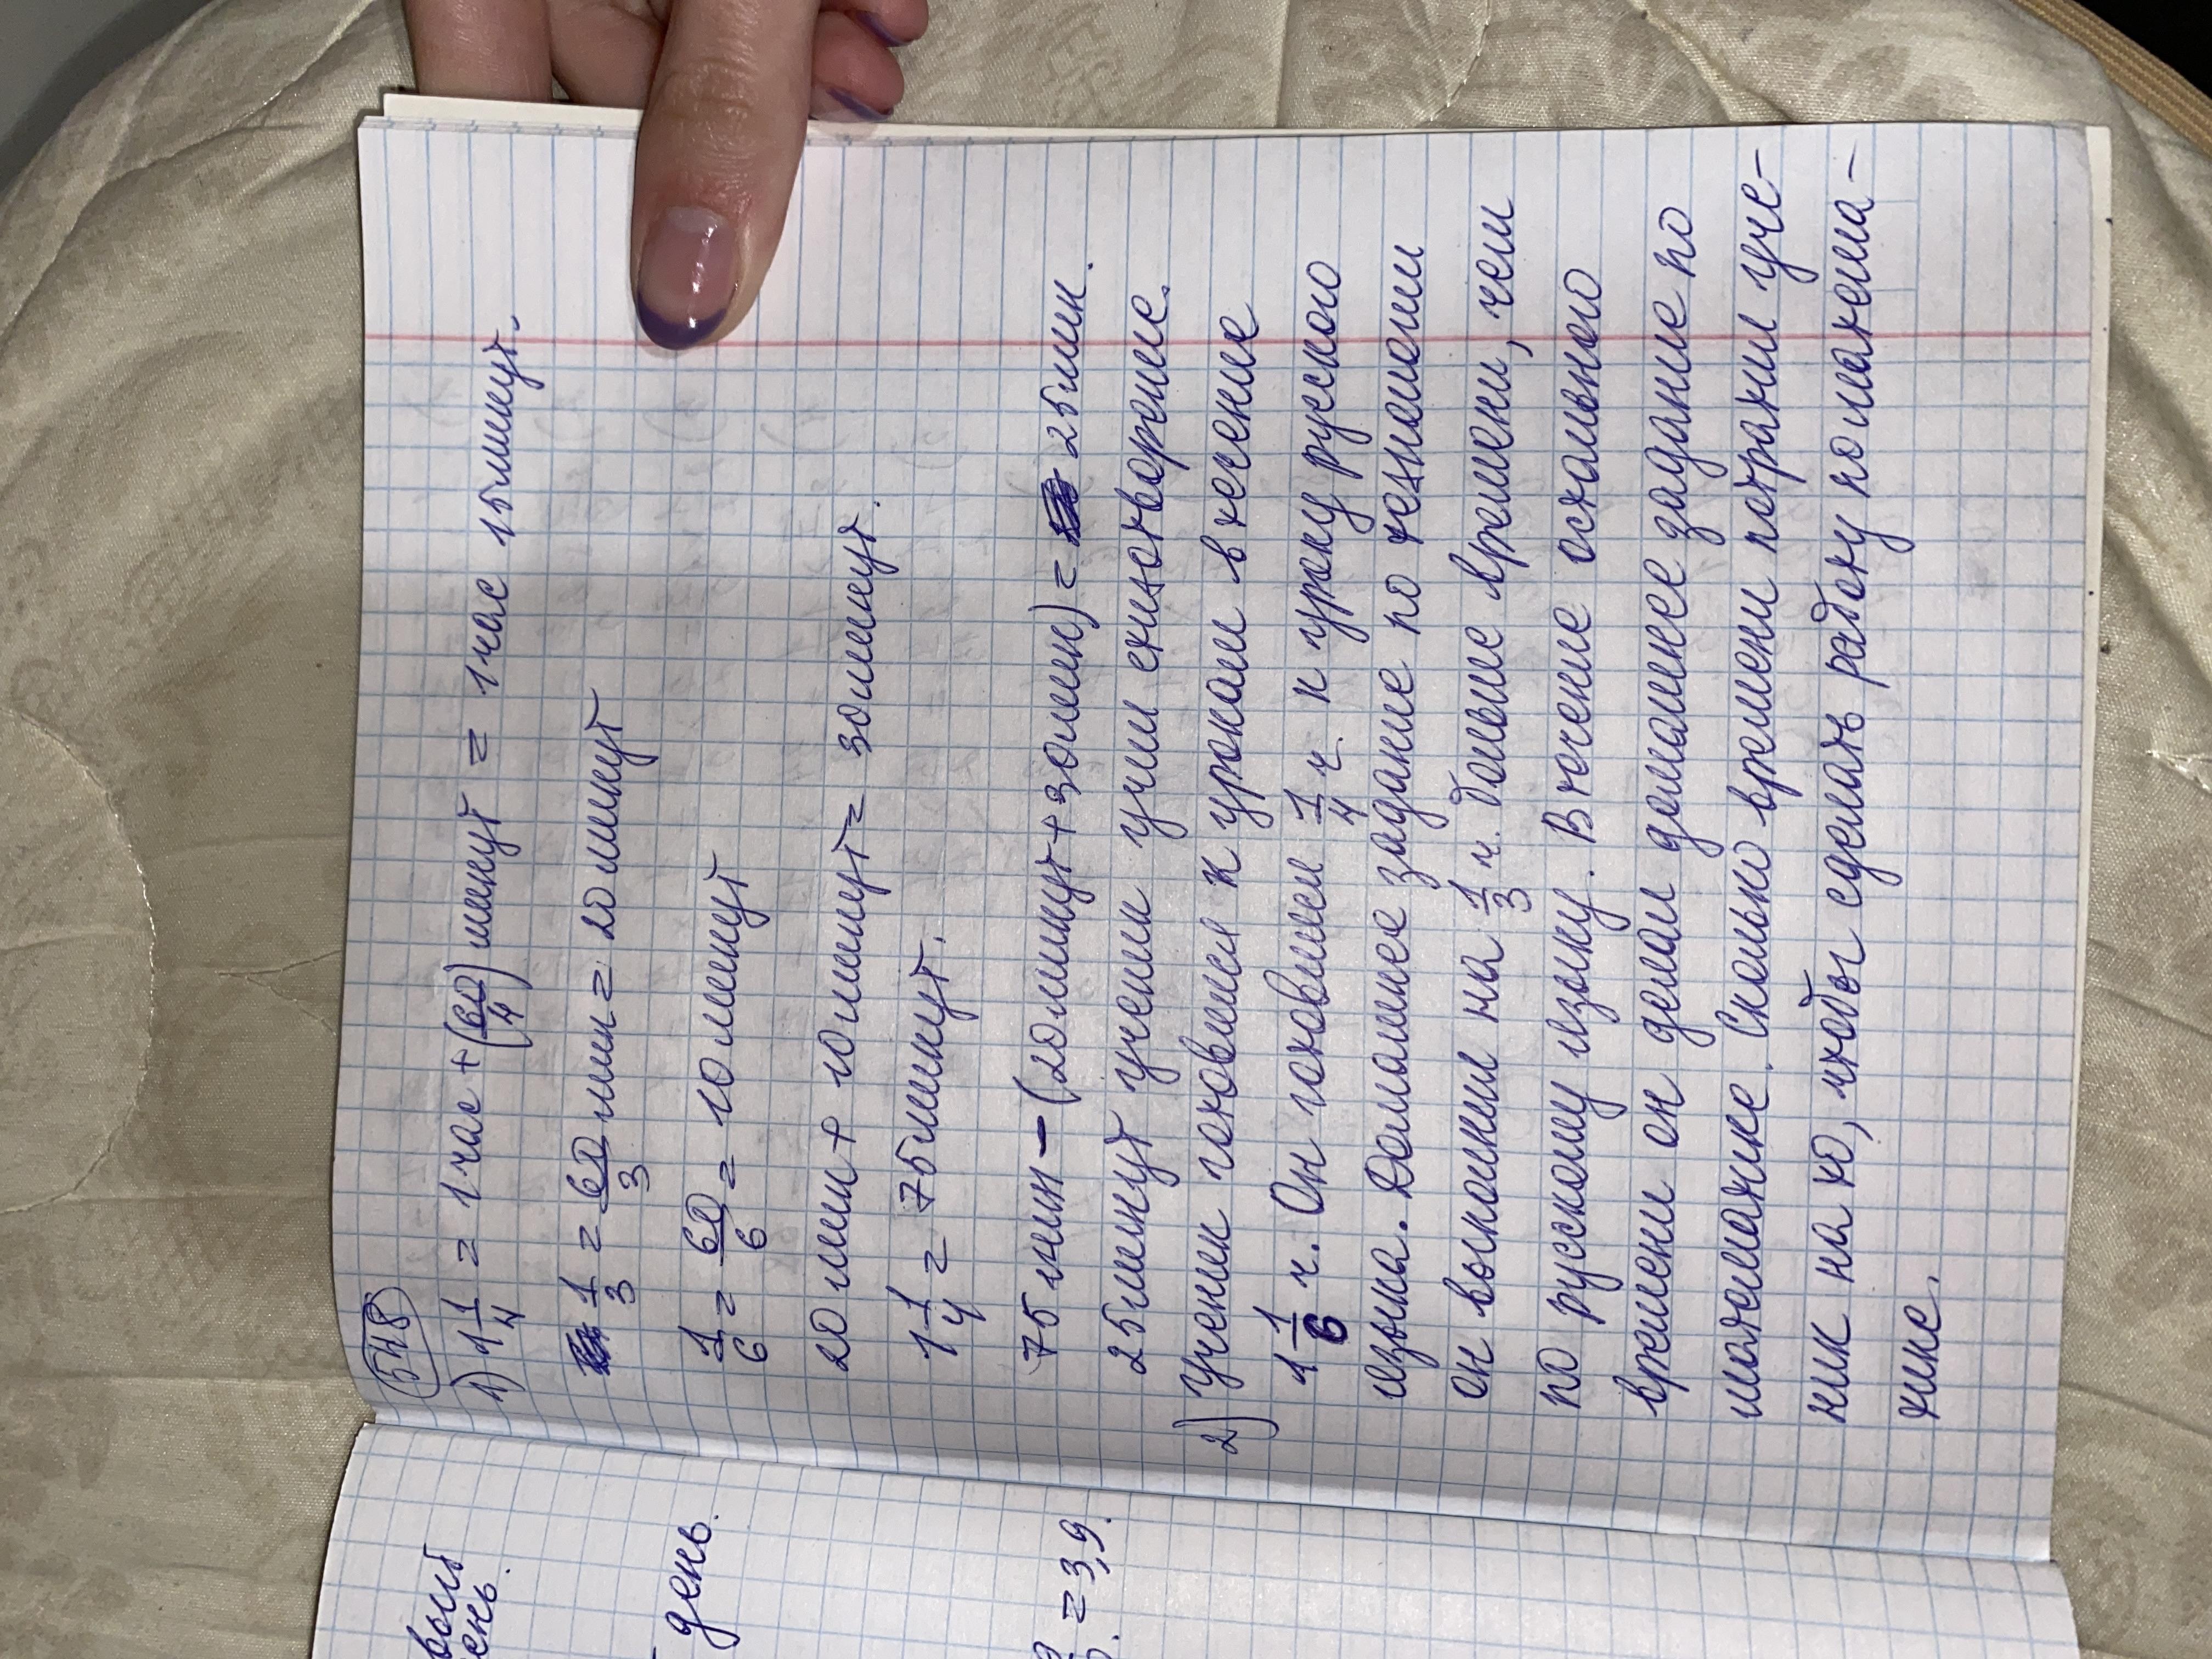 548
1) 1 1/4 = 1 час + (60/4) минут = 1 час 15 минут.
1/3 = 60/3 мин = 20 минут
1/6 = 60/6 = 10 минут
20 мин + 10 минут = 30 минут.
1 1/4 = 75 минут.
75 мин - (20 минут + 30 мин) = 25 мин.
25 минут ученик учил стихотворение.
2) Ученик готовился к урокам в течение
1 1/6 ч. Он готовился 1/4 ч. к уроку русского
языка. Домашнее задание по технологии
он выполнил на 1/3 ч. больше времени, чем
по русскому языку. В течение остального
времени он делал домашнее задание по
математике. Сколько времени потратил уче-
ник на то, чтобы сделать работу по матема-
тике.
день.
= 3,9.